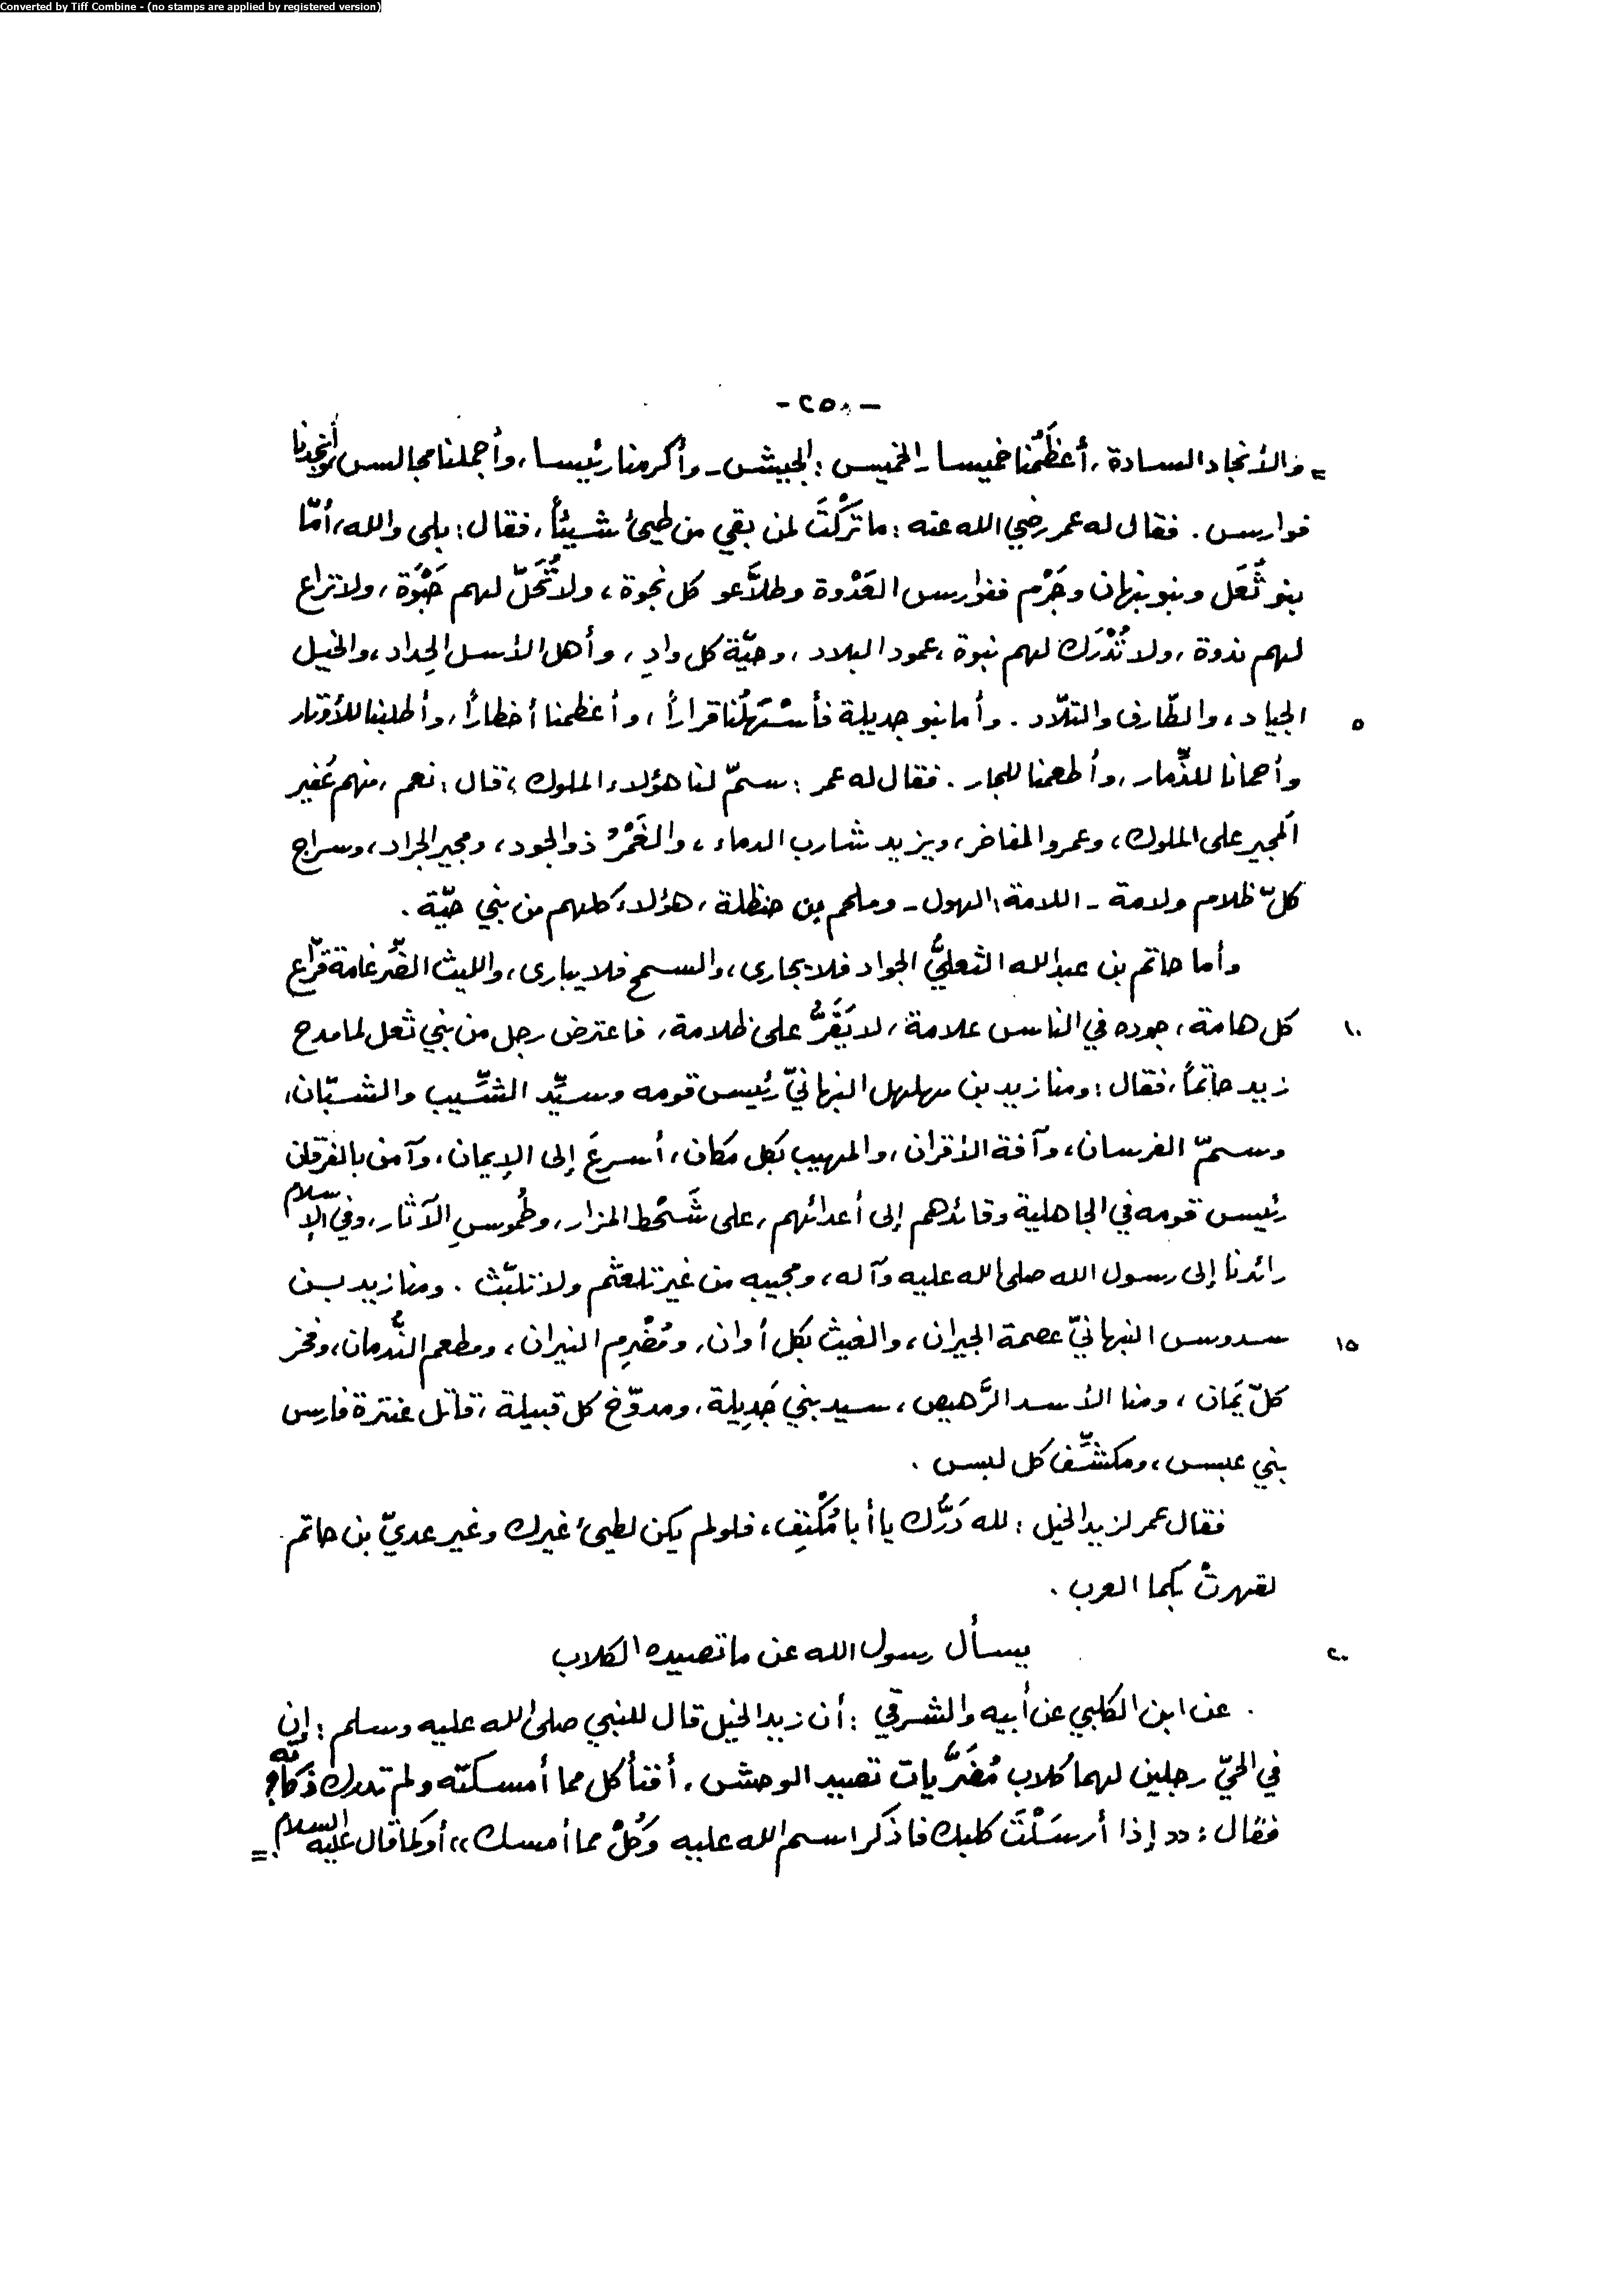 Converted by Tiff Combine - (no stamps are applied by registered version)
- ٢٥٠ -
= والأنجاد السادة ، أعظَمُنا خميسا - الخميس : الجيش - وأكرمنا رئيسا ، وأجملنا مجالس وأنجدنا
فوارس . فقال له عمر رضي الله عنه : ما تَرَكْتَ لمن بقي من طيئ شيئاً ، فقال : بلى والله ، أمّا
بنو ثُعَل وبنو نبهان وجَرْم ففوارس العَدْوة وطلاَّعو كل نجوة ، ولا تُحَلّ لهم حَبْوَة ، ولا تراع
لهم ندوة ، ولا تُدْرَك لهم نبوة ، عمود البلاد ، وحيّة كل وادٍ ، وأهل الأسل الحِداد ، والخيل
الجياد ، والطّارف والتلّاد . وأما بنو جديلة فأسْهَلُنا قراراً ، وأعظمنا أخطاراً ، وأطلبنا للأوتار ٥
وأحمانا للذِّمار ، وأطعمنا للجار . فقال له عمر : سمّ لنا هؤلاء الملوك ، قال : نعم ، منهم عُفير
المجير على الملوك ، وعمرو المفاخر ، ويزيد شارب الدماء ، والغَمْرُ ذو الجود ، ومجير الجراد ، وسراج
كلّ ظلام ولامة - اللامة : الهول - وملحم بن حنظلة ، هؤلاء كلهم من بني حيّة .
وأما حاتم بن عبد الله الثعليُّ الجواد فلا يجارى ، والسمح فلا يبارى ، والليث الضِّرغامة قرّاع
كل هامة ، جوده في الناس علامة ، لا يَقَرُّ على ظلامة ، فاعترض رجل من بني ثعل لما مدح ١٠
زيد حاتماً ، فقال : ومنا زيد بن مهلهل النبهانيّ رئيس قومه وسيِّد الشِّيب والشبّان ،
وسمّ الفرسان ، وآفة الأقران ، والمهيب بكل مكان ، أسرعَ إلى الإيمان ، وآمن بالفرقان
رئيس قومه في الجاهلية وقائدهم إلى أعدائهم ، على شَحْط المزار ، وطُموسِ الآثار ، وفي الإسلام
رائدنا إلى رسول الله صلى الله عليه وآله ، ومجيبه من غير تلعثم ولا تلبّث . ومنا زيد بن
سدوس النبهانيّ عصمة الجيران ، والغيث بكل أوان ، ومُضْرِم النيران ، ومطعم النُّدمان ، وفخر ١٥
كلّ يَمان ، ومنا الأسد الرَّهيص ، سيد بني جَدِيلة ، ومدوّخ كل قبيلة ، قاتل عنترة فارس
بني عبس ، ومكشِّف كل لبس .
فقال عمر لزيد الخيل : لله دَرُّك يا أبا مُكْنِف ، فلو لم يكن لطيئ غيرك وغير عديّ بن حاتم
لقهرتْ بكما العرب .
يسأل رسول الله عن ما تصيده الكلاب ٢٠
عن ابن الكلبي عن أبيه والشرقي : أن زيد الخيل قال للنبي صلى الله عليه وسلم : إن
في الحيّ رجلين لهما كلاب مُضَرَّيات تصيد الوحش ، أفنأكل مما أمسكته ولم تدرك ذكاته ؟
فقال : (( إذا أرسَلْتَ كلبك فاذكر اسم الله عليه وكُلْ مما أمسك )) أو كما قال عليه السلام . =